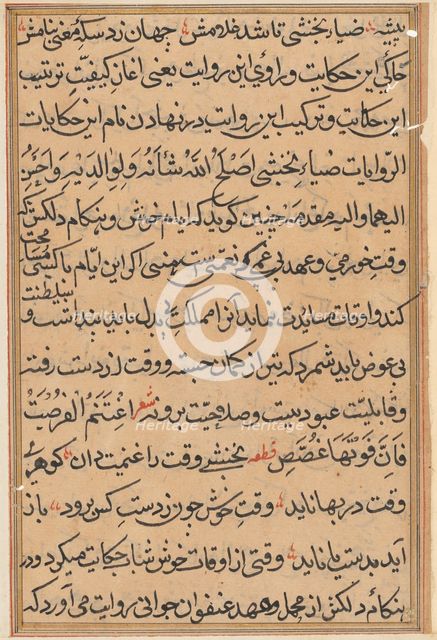 پیشه ضیاء نخشبی تا شد غلامش جهان زد سکهٔ معنی بنامش
حاکی این حکایت و راوی این روایت یعنی آغاز کیفیت ترتیب
این حکایت و ترکیب این روایت در نهادن نام این حکایات
الروایات ضیاء نخشبی اصلح الله شأنه ولوالدیه واحسن
الیهما والیه مقدمه چنین کوید که ایام خوش و هنکام دلکش که
وقت خورمی و عهد بی غمی کو نعمتی است هنسی اکر این ایام با کسی
مسامحت
کند و اوقات مساعدت نماید آنرا مملکت بی بدل باید پنداشت و
بسلطنت
بی عوض باید شمرد که تیر از کمان جسته و وقت از دست رفته
و قابلیت عبود نیست و صلاحیت برود شعر اغتنم الفرصت
فان فوتها غصص قطعه نخشبی وقت را غنیمت دان کوهر
وقت در بها ناید وقت خوش چون ز دست کس برود باز
آید بدست یا ناید وقتی از اوقات خوش شباب حکایت میکرد و در
هنکام دلکش از محمل و عهد عنفوان جوانی روایت می آورد که
Heritage
Heritage
Heritage
Heritage